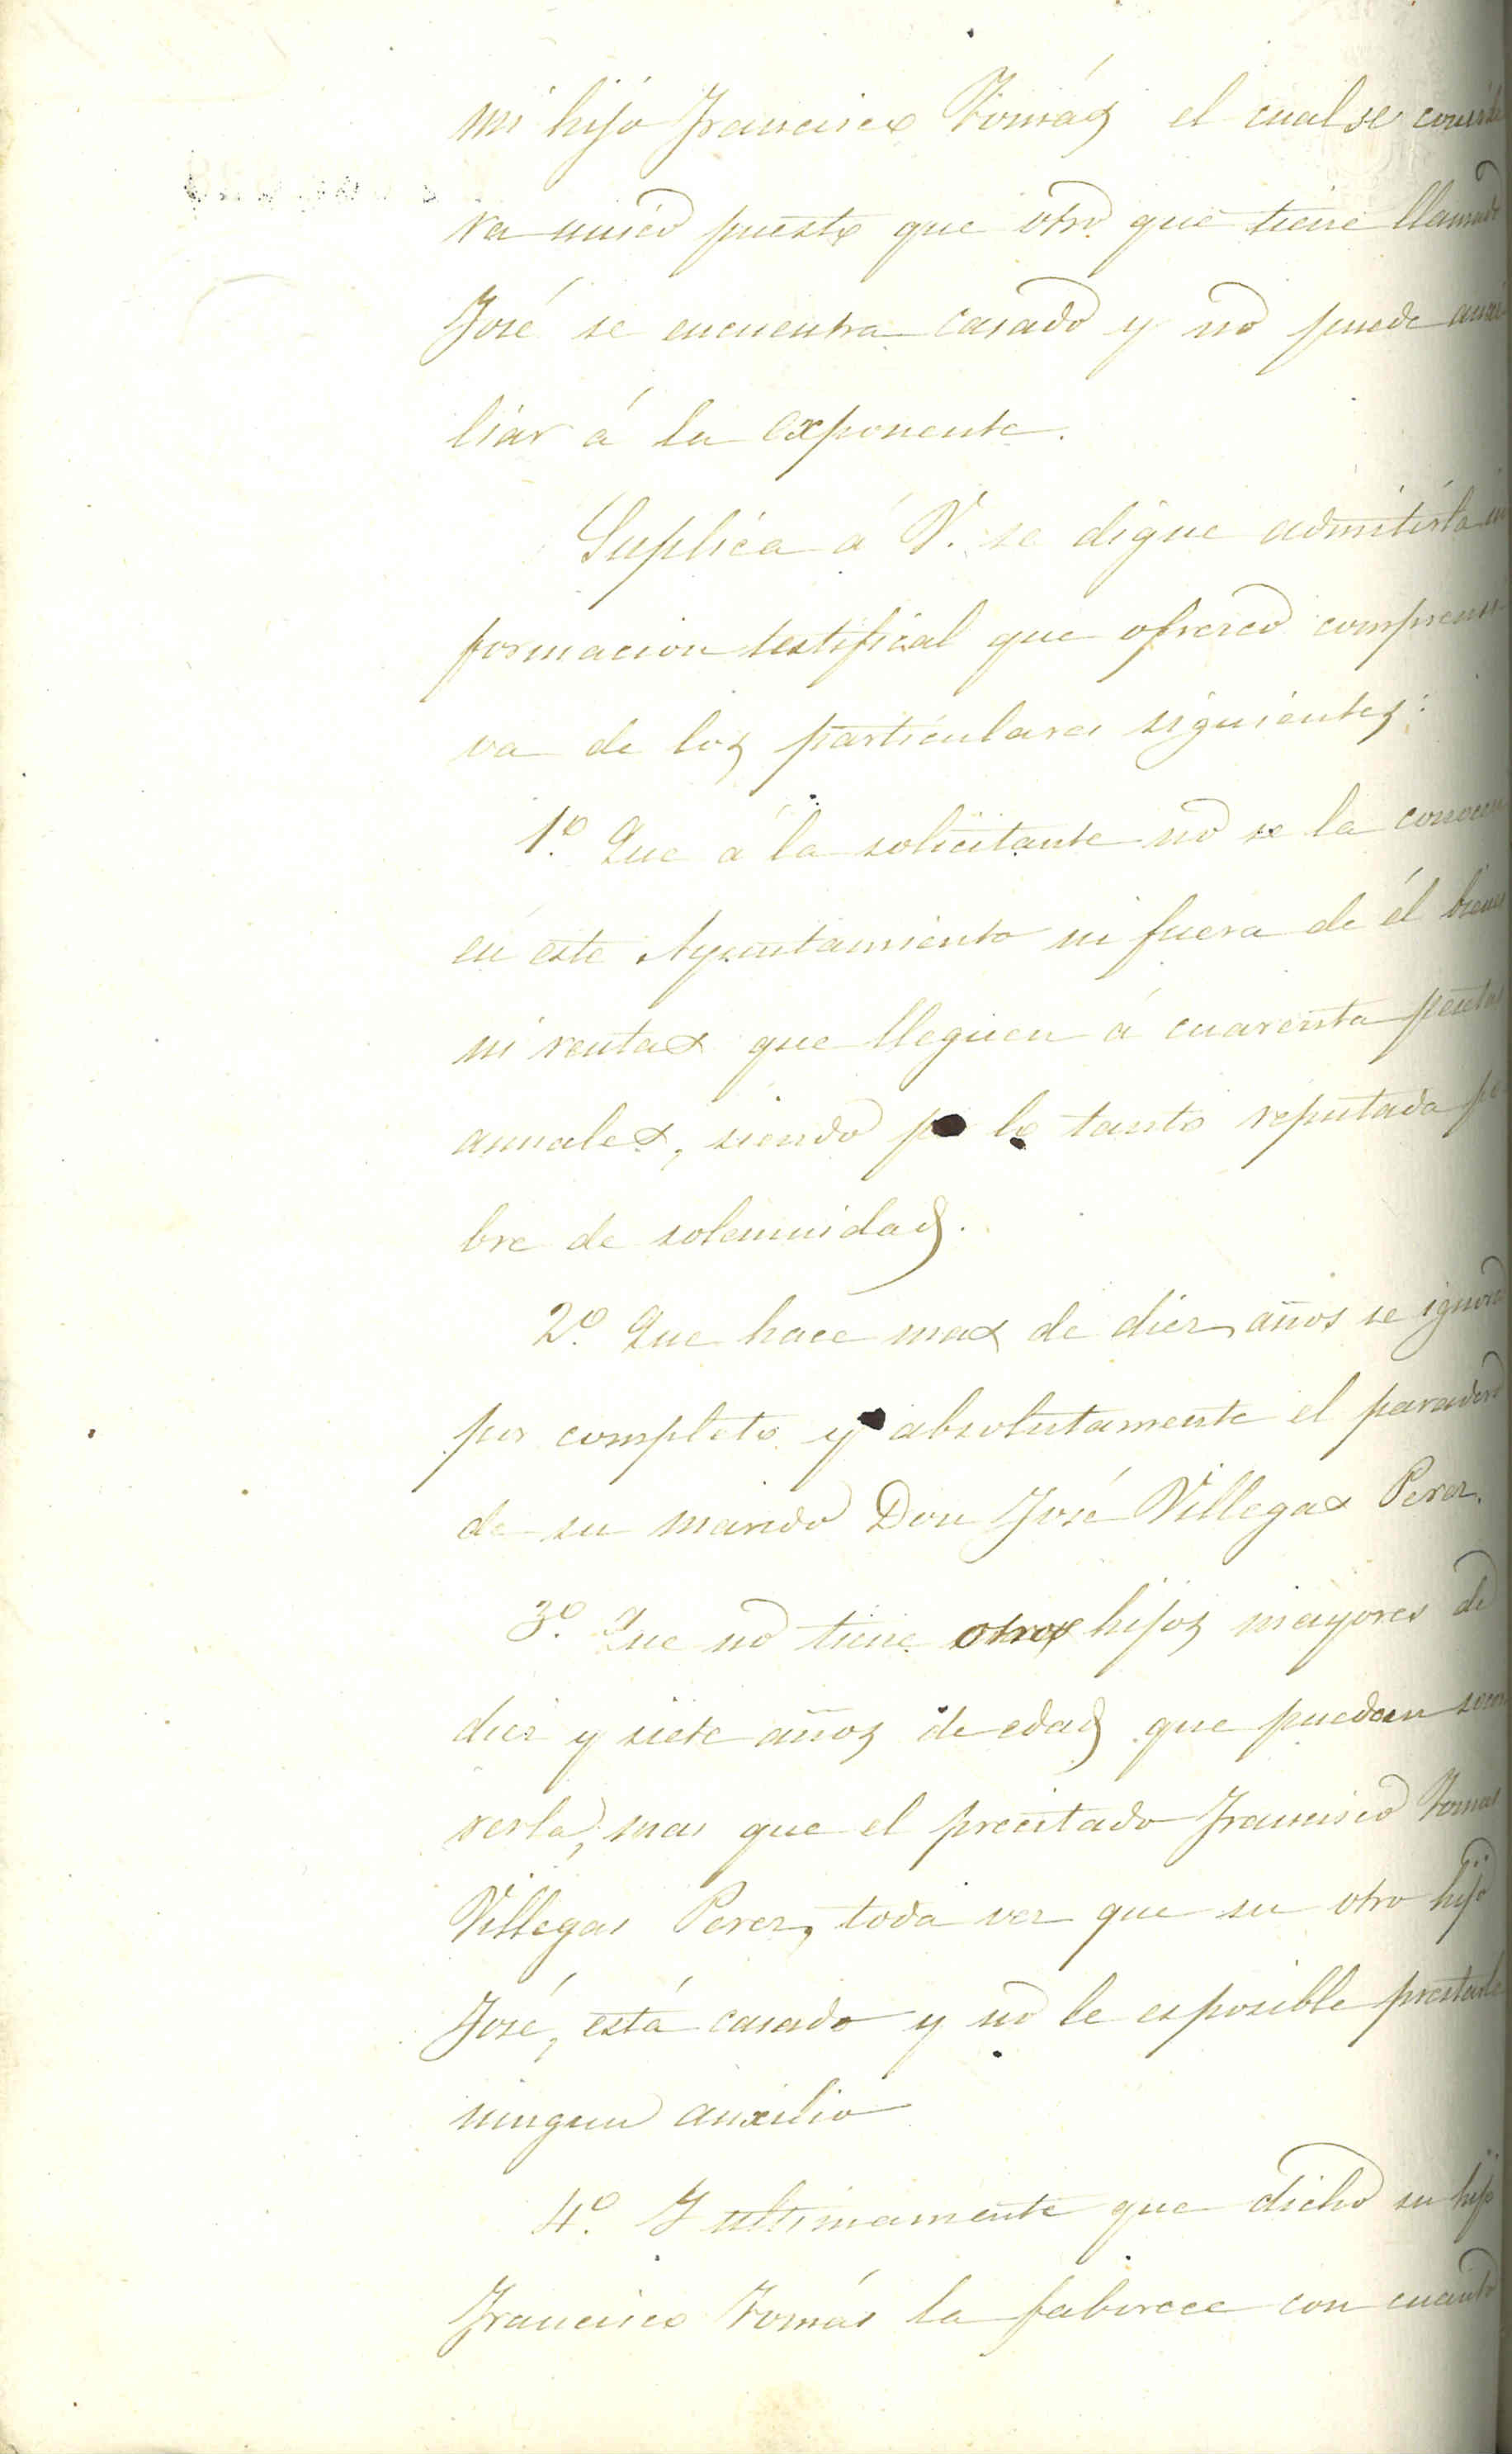 mi hijo Francisco Tomás el cual se conside
ra unico puesto que otro que tiene llamado
José se encuentra casado y no puede auxi
liar á la exponente.
Suplica á V. se digne admitirla in
formacion testifical que ofrezco comprensi
va de los particulares siguientes:
1.º Que á la solicitante no se la conocen
en este Ayuntamiento ni fuera de él bienes
ni rentas que lleguen á cuarenta pesetas
anuales, siendo po lo tanto reputada po
bre de solemnidad.
2.º Que hace mas de diez años se ignora
por completo y absolutamente el paradero
de su marido Don José Villegas Perez.
3.º Que no tiene otros hijos mayores de
diez y siete años de edad que puedan socor
rerla, mas que el precitado Francisco Tomas
Villegas Perez, toda vez que su otro hijo
José, está casado y no le es posible prestarle
ningun auxilio
4.º Y ultimamente que dicho su hijo
Francisco Tomás la faborece con cuanto